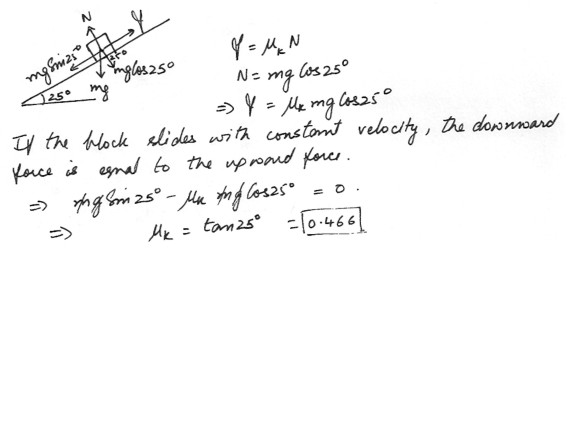 N
f
mg Sin 25°
25°
mg Cos 25°
mg
25°
f = μₖ N
N = mg Cos 25°
⇒ f = μₖ mg Cos 25°
If the block slides with constant velocity, the downward
force is equal to the upward force.
⇒ mg Sin 25° - μₖ mg Cos 25° = 0.
⇒ μₖ = tan 25° = 0.466